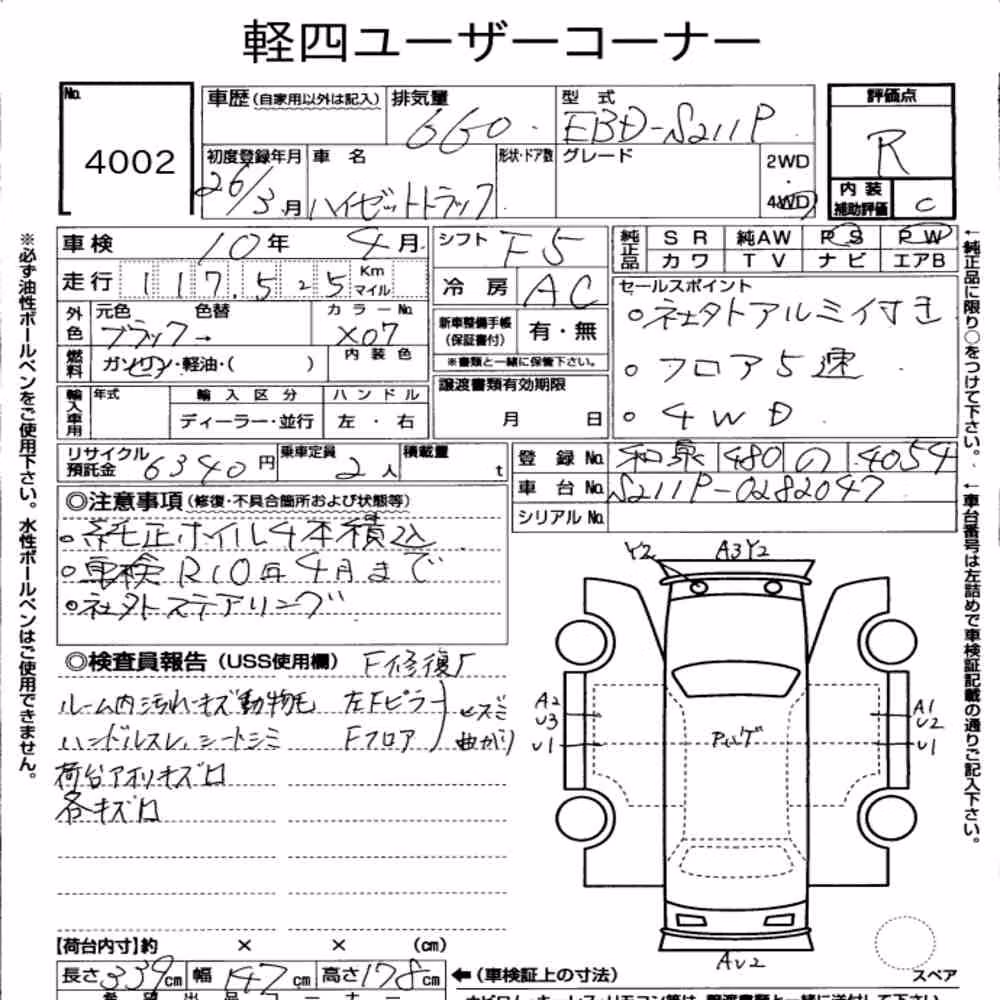 軽四ユーザーコーナー
No. 4002
車歴(自家用以外は記入) 排気量 660 型式 EBD-S211P
評価点 R
初度登録年月 26/3月 車名 ハイゼットトラック 形状・ドア数 グレード 2WD・4WD
内装補助評価 C
車検 10年 4月 シフト F5 純正品 SR 純AW PS PW
カワ TV ナビ エアB
走行 117,525 Km マイル 冷房 AC
セールスポイント
外色 元色 ブラック→ 色替 カラーNo. X07
新車整備手帳(保証書付) 有・無
※書類と一緒に保管下さい。
◦社外アルミ付き
◦フロア5速
◦4WD
燃料 ガソリン・軽油・( ) 内装色
譲渡書類有効期限 月 日
輸入車用 年式 輸入区分 ハンドル
ディーラー・並行 左・右
リサイクル預託金 6340円 乗車定員 2人 積載量 t
登録No. 和泉 480 の 4054
車台No. S211P-0282047
シリアルNo.
◎注意事項(修復・不具合箇所および状態等)
◦純正ホイル4本積込
◦車検R10年4月まで
◦社外ステアリング
◎検査員報告(USS使用欄) F修復
ルーム内汚れキズ動物毛 左Fピラー
ハンドルスレ、シートシミ Fフロア
曲がり
荷台アオリキズ
各キズ
Y2 A3Y2
A2 U3 U1
A1 U2 U1
AU2
スペア
【荷台内寸】約 × × (cm)
長さ339cm 幅147cm 高さ178cm ←(車検証上の寸法)
※必ず油性ボールペンをご使用下さい。水性ボールペンはご使用できません。
←純正品に限り○をつけて下さい。
←車台番号は左詰めで車検証記載の通りご記入下さい。